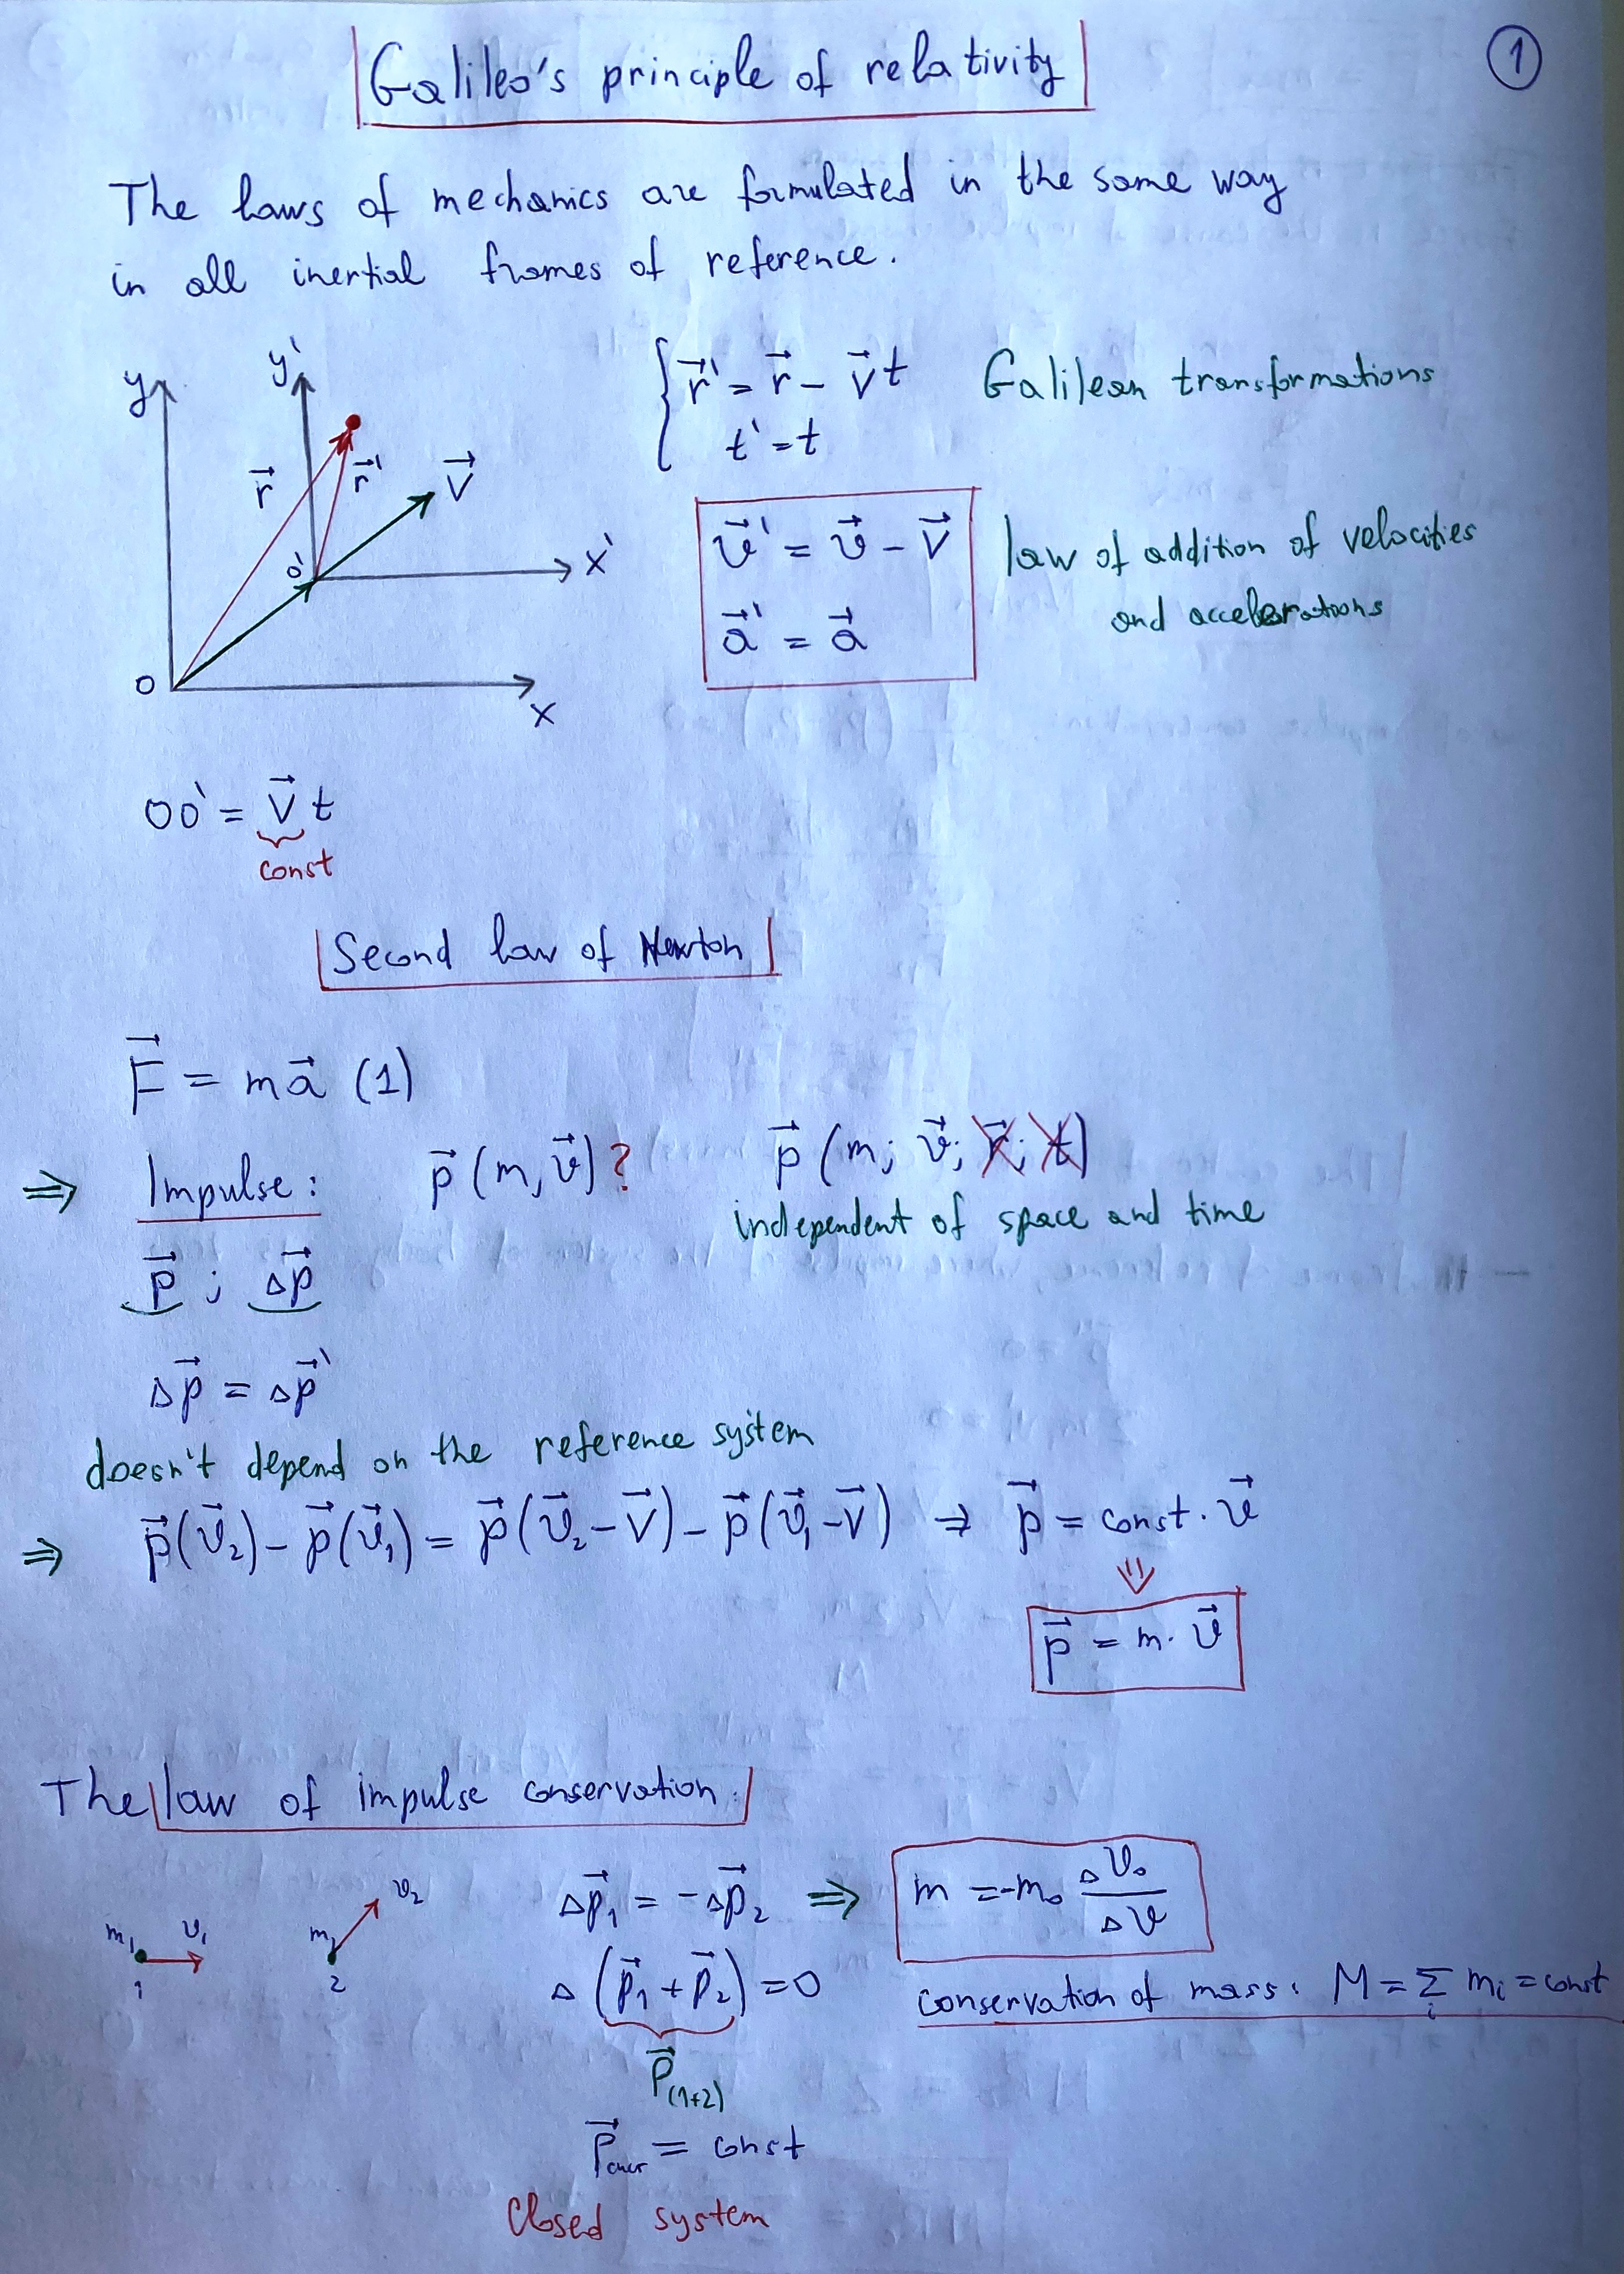 ①
Galileo's principle of relativity
The laws of mechanics are formulated in the same way
in all inertial frames of reference.
y y' r⃗ r⃗' V⃗ o o' x' x
{ r⃗' = r⃗ - V⃗t
t' = t
Galilean transformations
v⃗' = v⃗ - V⃗
a⃗' = a⃗
law of addition of velocities
and accelerations
OO' = V⃗t
const
Second law of Newton
F⃗ = ma⃗ (1)
⇒ Impulse: p⃗(m, v⃗)? p⃗(m; v⃗; r⃗; t)
independent of space and time
p⃗; Δp⃗
Δp⃗ = Δp⃗'
doesn't depend on the reference system
⇒ p⃗(v⃗₂) - p⃗(v⃗₁) = p⃗(v⃗₂ - V⃗) - p⃗(v⃗₁ - V⃗) ⇒ p⃗ = const · v⃗
⇓
p⃗ = m · v⃗
The law of impulse conservation:
m₁ v₁ 1
m₁ v₂ 2
Δp⃗₁ = - Δp⃗₂ ⇒
m = -m₀ Δv₀/Δv
Δ(p⃗₁ + p⃗₂) = 0
p⃗(1+2)
conservation of mass: M = Σ mᵢ = const
i
= const
Closed system